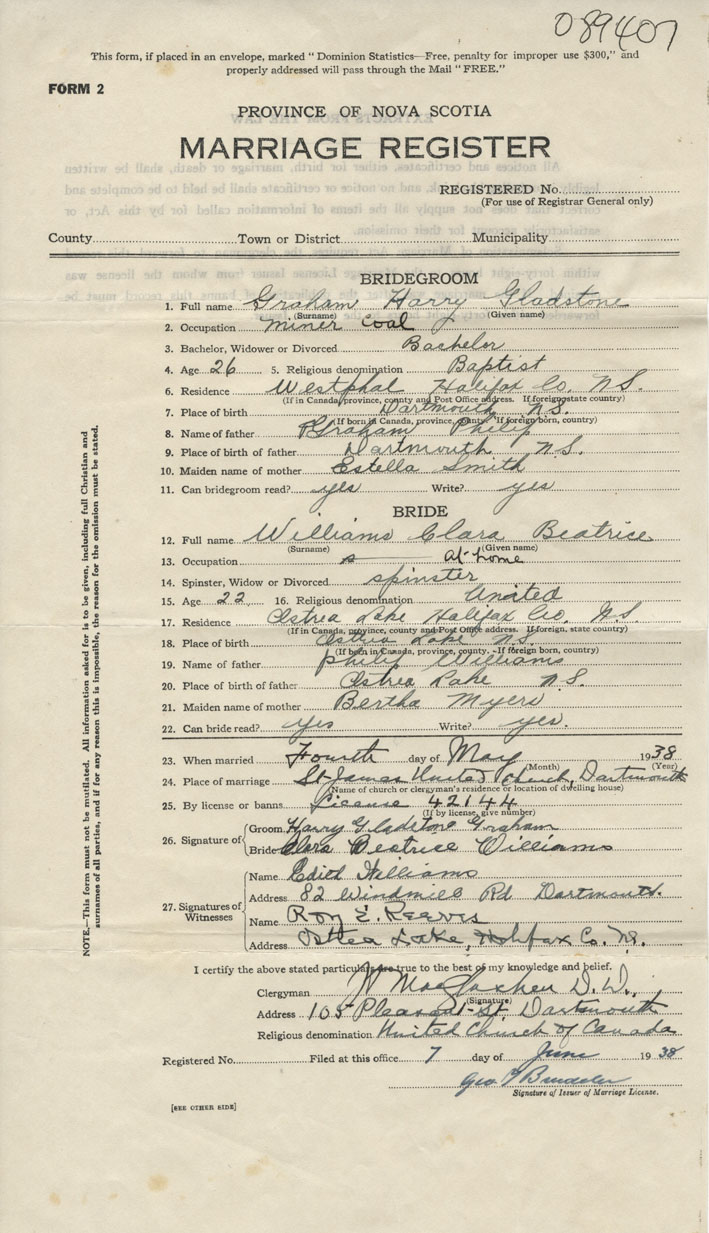 089407
This form, if placed in an envelope, marked "Dominion Statistics—Free, penalty for improper use $300," and
properly addressed will pass through the Mail "FREE."
FORM 2
PROVINCE OF NOVA SCOTIA
MARRIAGE REGISTER
REGISTERED No.
(For use of Registrar General only)
County Town or District Municipality
BRIDEGROOM
1. Full name Graham Harry Gladstone
(Surname) (Given name)
2. Occupation miner coal
3. Bachelor, Widower or Divorced Bachelor
4. Age 26 5. Religious denomination Baptist
6. Residence Westphal Halifax Co. N.S.
(If in Canada, province, county and Post Office address. If foreign, state country)
7. Place of birth Dartmouth N.S.
(If born in Canada, province, county. If foreign born, country)
8. Name of father Graham Philip
9. Place of birth of father Dartmouth N.S.
10. Maiden name of mother Estella Smith
11. Can bridegroom read? yes Write? yes
BRIDE
12. Full name Williams Clara Beatrice
(Surname) (Given name)
13. Occupation At home
14. Spinster, Widow or Divorced spinster
15. Age 22 16. Religious denomination United
17. Residence Ostrea Lake Halifax Co. N.S.
(If in Canada, province, county and Post Office address. If foreign, state country)
18. Place of birth Ostrea Lake N.S.
(If born in Canada, province, county. If foreign born, country)
19. Name of father Philip Williams
20. Place of birth of father Ostrea Lake N.S.
21. Maiden name of mother Bertha Myers
22. Can bride read? yes Write? yes.
23. When married Fourth day of May 1938
(Month) (Year)
24. Place of marriage St. James United Church, Dartmouth
(Name of church or clergyman's residence or location of dwelling house)
25. By license or banns License 42144
(If by license, give number)
26. Signature of Groom Harry Gladstone Graham
Bride Clara Beatrice Williams
27. Signatures of Witnesses Name Edith Williams
Address 82 Windmill Rd Dartmouth.
Name Roy E. Reeves
Address Ostrea Lake, Halifax Co. NS.
I certify the above stated particulars are true to the best of my knowledge and belief.
Clergyman
(Signature)
Address 105 Pleasant St. Dartmouth
Religious denomination United Church of Canada
Registered No. Filed at this office 7 day of June 1938
Geo
Signature of Issuer of Marriage License.
[SEE OTHER SIDE]
NOTE.—This form must not be mutilated. All information asked for is to be given, including full Christian and
surnames of all parties, and if for any reason this is impossible, the reason for the omission must be stated.